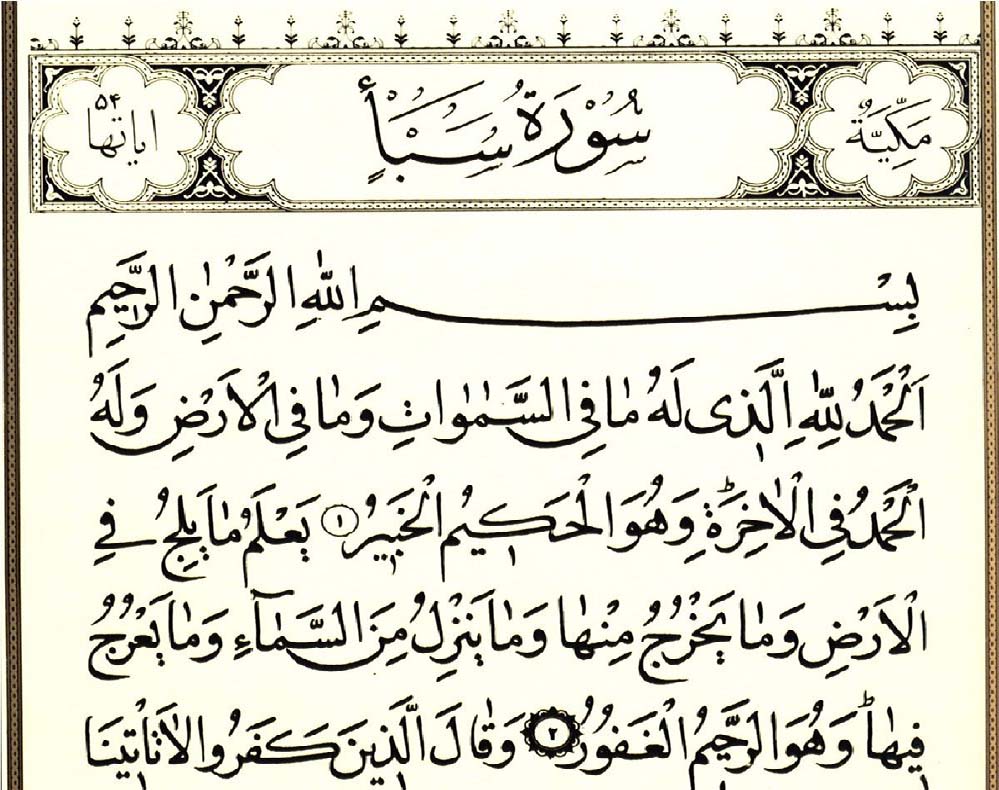 مَكِّيَّةٌ
سُورَةُ سَبَأٍ
اياتها ٥٤
بِسْمِ اللهِ الرَّحْمٰنِ الرَّحِيمِ
اَلْحَمْدُ لِلّٰهِ الَّذِى لَهُ مَا فِى السَّمٰوَاتِ وَمَا فِى الْاَرْضِ وَلَهُ
الْحَمْدُ فِى الْاٰخِرَةِ ۜ وَهُوَ الْحَكِيمُ الْخَبِيرُ ١ يَعْلَمُ مَا يَلِجُ فِى
الْاَرْضِ وَمَا يَخْرُجُ مِنْهَا وَمَا يَنْزِلُ مِنَ السَّمَاۤءِ وَمَا يَعْرُجُ
فِيهَا ۜ وَهُوَ الرَّحِيمُ الْغَفُورُ ٢ وَقَالَ الَّذِينَ كَفَرُوا لَا تَأْتِينَا